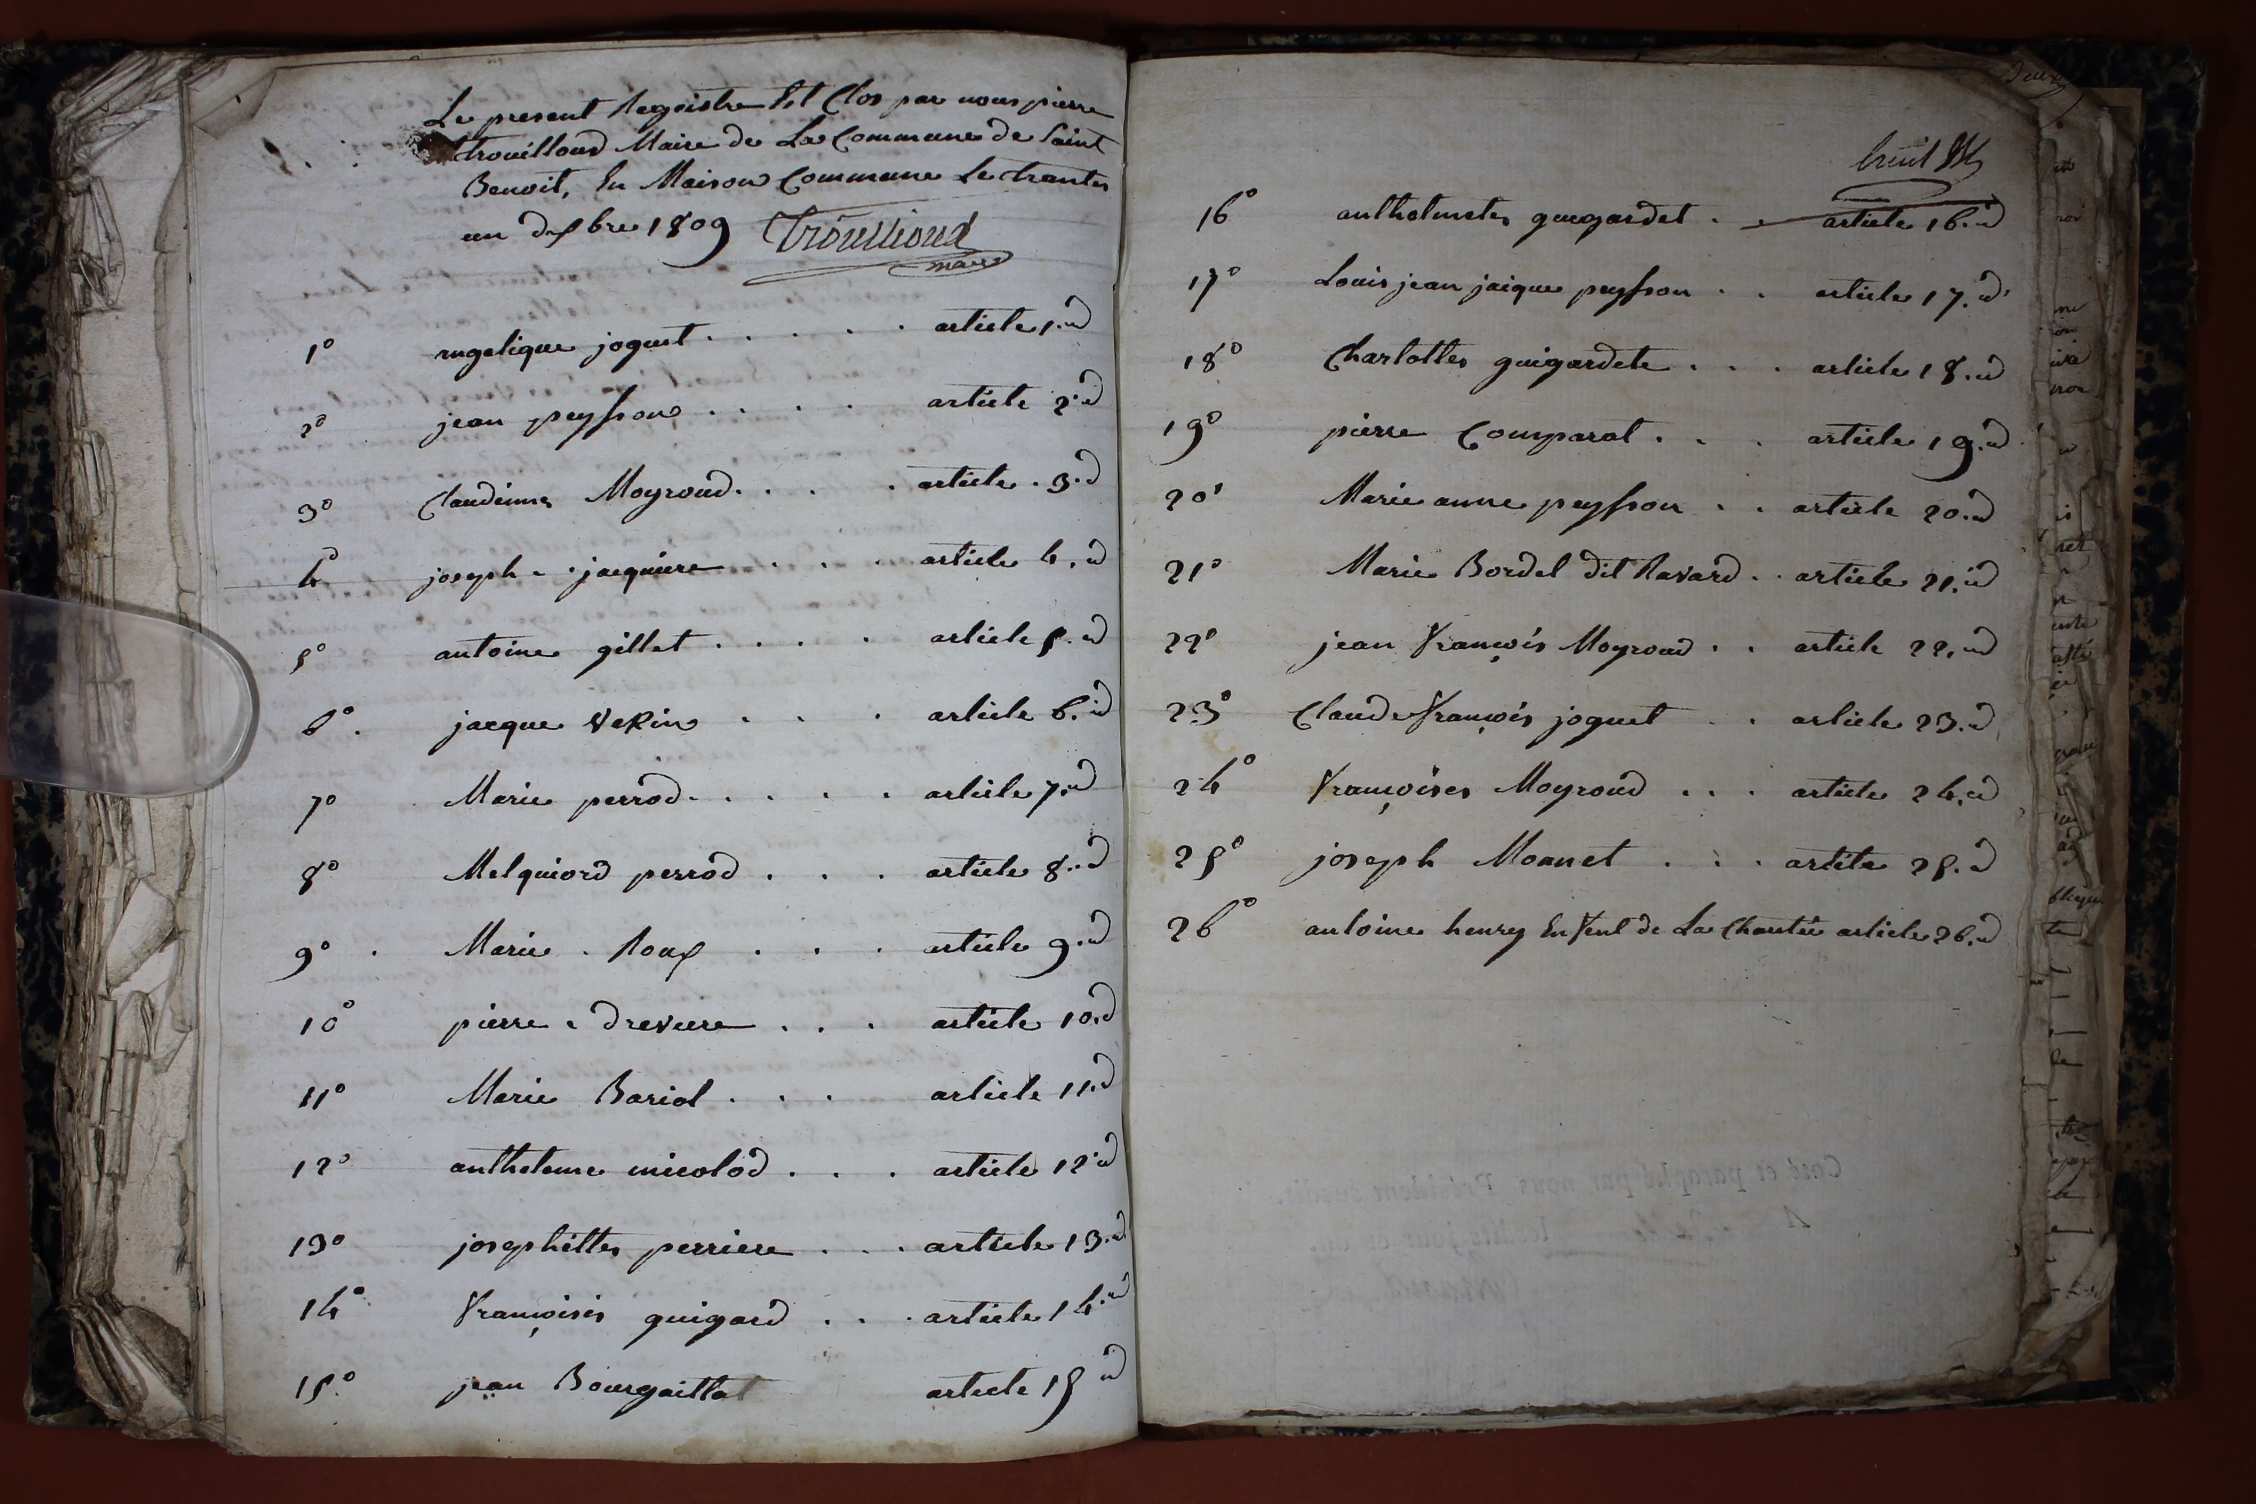 Le present Regoistre Est Clos par nous pierre
trouilloud Maire de La Commune de Saint
Benoit, En Maison Commune Le trante
un dexbre 1809 Trouilloud
maire
1° angelique joguet . . . . . article 1.id
2° jean peysson . . . . article 2.id
3° Claudinne Moyroud . . . . article . 3.d
4° joseph . jacquiere . . . article 4.id
5° antoine gillet . . . . article 5.id
6° . jacque Vekin . . . article 6.id
7° Marie perrod . . . . . article 7.id
8° Melquiord perrod . . . article 8.d
9° . Marie . Roux . . . article 9.id
10° pierre . drevere . . . article 10.d
11° Marie Bariol . . . article 11.d
12° anthelme micolod . . . article 12.id
13° josephitte perriere . . . article 13.d
14° Françoises guigard . . . article 14.id
15° jean Bourgaillat article 15 id
16° anthelmete guygardet . . article 16.id
17° Louis jean jaique peysson . . article 17.id
18° Charlotte guigardete . . . article 18.id
19° pierre Comparat . . . article 19.id
20° Marie anne peysson . . article 20.id
21° Marie Bordel dit Ravard . . article 21.id
22° jean François Moyroud . . article 22.id
23° Claude François joguet . . article 23.d
24° Françoises Moyroud . . . article 24.id
25° joseph Monnet . . . article 25.d
26° antoine henry Enfent de La Charitée article 26.id